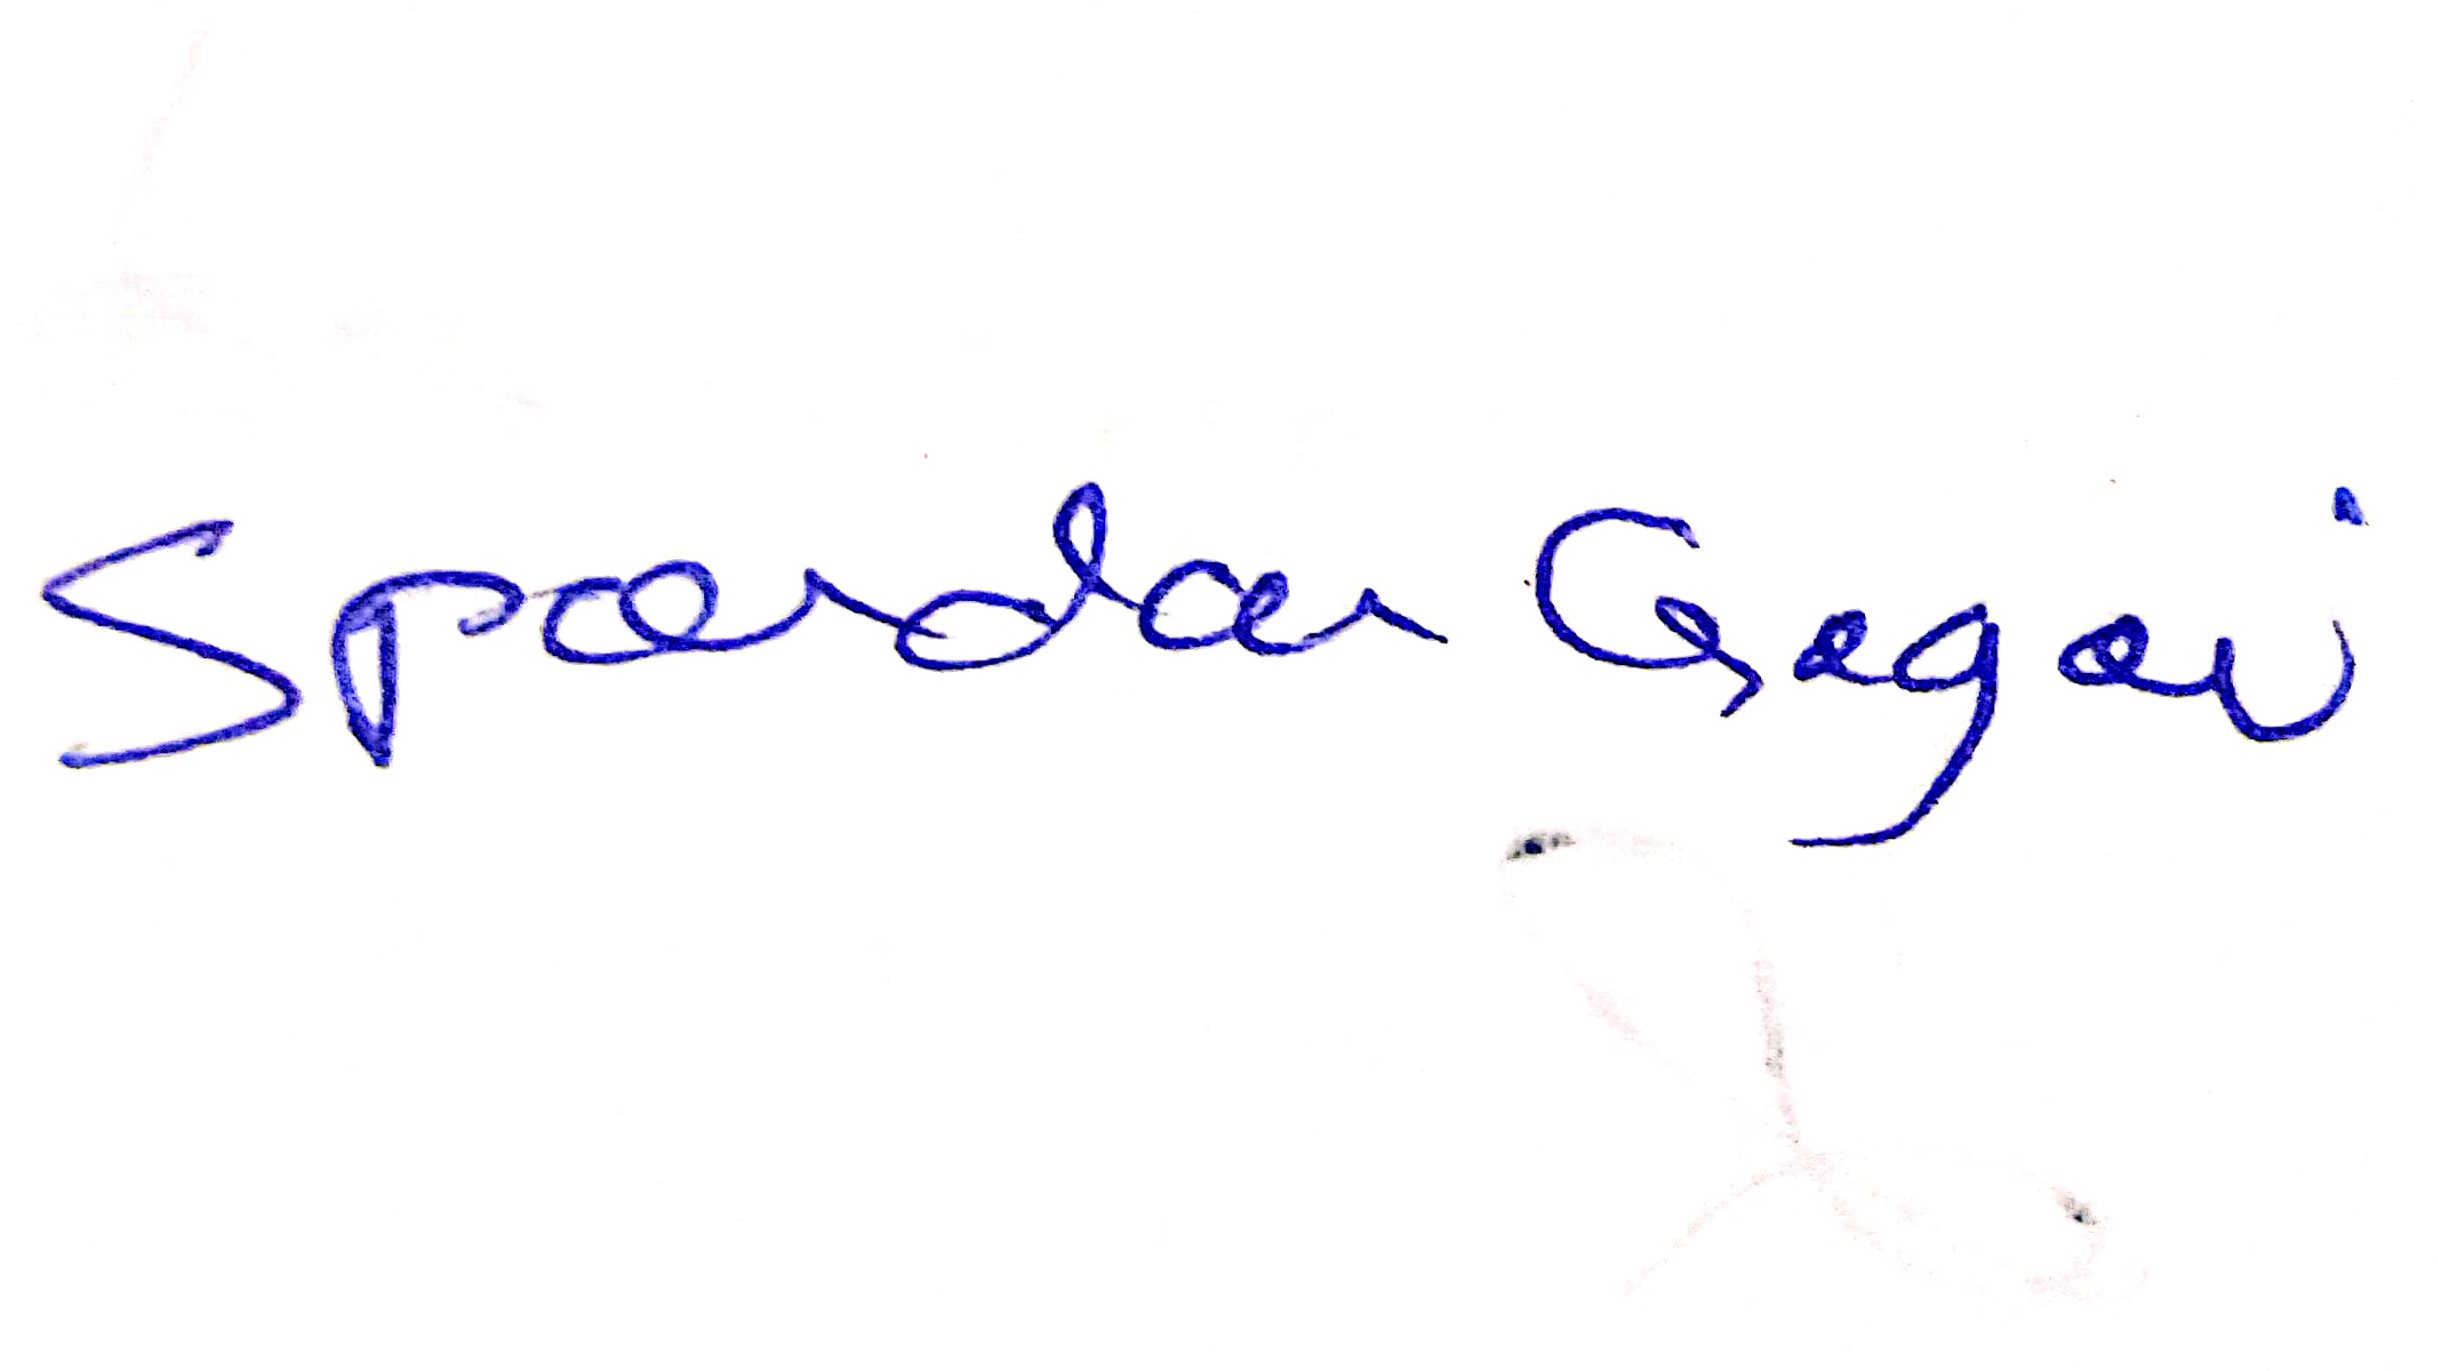 Spandan Gogoi